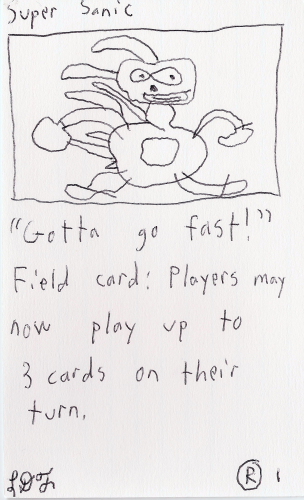 Super Sanic
"Gotta go fast!"
Field card: Players may
now play up to
3 cards on their
turn.
R 1